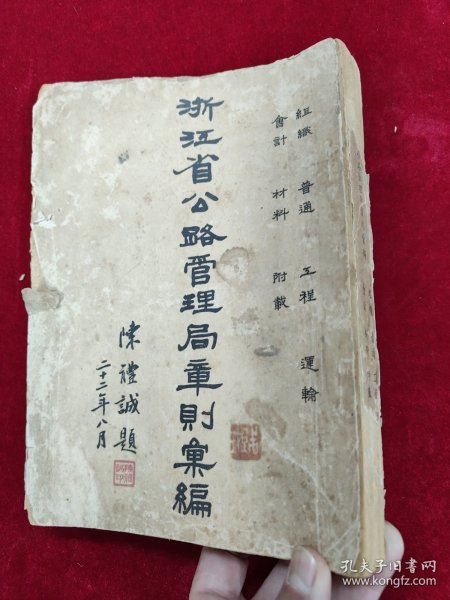 組織 普通 工程 運輸
會計 材料 附載
浙江省公路管理局章則彙編
陳禮誠題
二十二年八月
孔夫子旧书网
www.kongfz.com